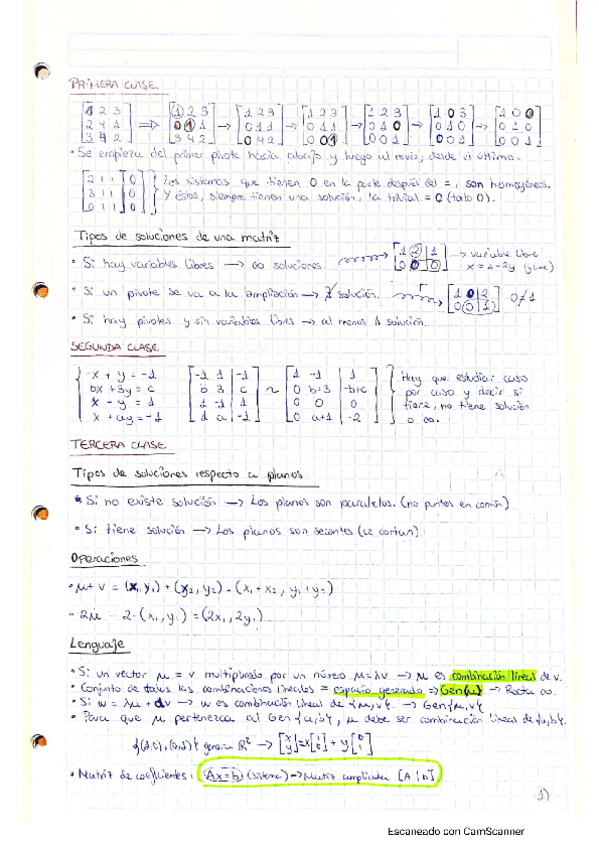 PRIMERA CLASE.
[1 2 3 / 2 4 1 / 3 4 2] => [1 2 3 / 0 1 1 / 3 4 2] → [1 2 3 / 0 1 1 / 0 4 2] → [1 2 3 / 0 1 1 / 0 0 1] → [1 2 3 / 0 1 0 / 0 0 1] → [1 0 3 / 0 1 0 / 0 0 1] → [1 0 0 / 0 1 0 / 0 0 1]
• Se empieza del primer pivote hacia abajo y luego al revés, desde el último.
[2 1 1 | 0 / 3 1 1 | 0 / 0 1 1 | 0] Los sistemas que tienen 0 en la parte después del =, son homogéneos.
Y éstos, siempre tienen una solución, la trivial = 0 (todo 0).
Tipos de soluciones de una matriz
• Si hay variables libres → ∞ soluciones. [1 2 | 1 / 0 0 | 0] → variable libre
x = 1-2y (y libre)
• Si un pivote se va a la ampliación → ∄ solución. [1 0 | 2 / 0 0 | 1] 0≠1
• Si hay pivotes y sin variables libres → al menos 1 solución.
SEGUNDA CLASE.
-x + y = -1
bx + 3y = c
x - y = 1
x + ay = -1
[-1 1 | -1 / b 3 | c / 1 -1 | 1 / 1 a | -1] ~ [1 -1 | 1 / 0 b+3 | -b+c / 0 0 | 0 / 0 a+1 | -2]
Hay que estudiar caso
por caso y decir si
tiene, no tiene solución
o ∞.
TERCERA CLASE.
Tipos de soluciones respecto a planos
• Si no existe solución → Los planos son paralelos. (no puntos en común)
• Si tiene solución → Los planos son secantes (se cortan)
Operaciones
• μ + v = (x₁, y₁) + (x₂, y₂) = (x₁ + x₂, y₁ + y₂)
• 2μ = 2·(x₁, y₁) = (2x₁, 2y₁)
Lenguaje
• Si un vector μ = v multiplicado por un número μ=λv → μ es combinación lineal de v.
• Conjunto de todas las combinaciones lineales = espacio generado => Gen{μ} → Recta ∞.
• Si w = λμ + αv → w es combinación lineal de {μ,v}. → Gen{μ,v}
• Para que μ pertenezca al Gen{a,b}, μ debe ser combinación lineal de {a,b}.
{(1,0), (0,1)} genera ℝ² → [x / y] = x[1 / 0] + y[0 / 1]
• Matriz de coeficientes: Ax=b (sistema) → Matriz ampliada [A | b]
1)
Escaneado con CamScanner